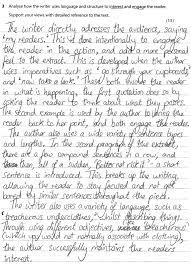 3 Analyse how the writer uses language and structure to interest and engage the reader.
Support your views with detailed reference to the text.
(15)
The writer directly addresses the audience, saying
"my readers". This is done intentionally to engage
the reader in the action, and add a more personal
feel to the text. This is developed when the author
uses imperatives such as "go through your cupboards"
and "now take a look". These both involve the reader
in what is happening, the first quotation does so by
asking the reader to think about what they possess.
The second example is used by the author to bring the
reader back to her point, and both engage the reader.
The author also uses a wide variety of sentence types
and lengths. In the second paragraph of the extract,
there are a few compound sentences in a row, and
then, all of a sudden, - a short
sentence is introduced. This breaks up the writing,
allowing the reader to stay focused and not get
bored by similar sentences throughout the piece.
The writer also uses a variety of language, such as
"treacherous underclothes", "whilst things.
Through using different adjectives,
(which you would not normally associate with clothing),
the author successfully maintains the readers
interest.